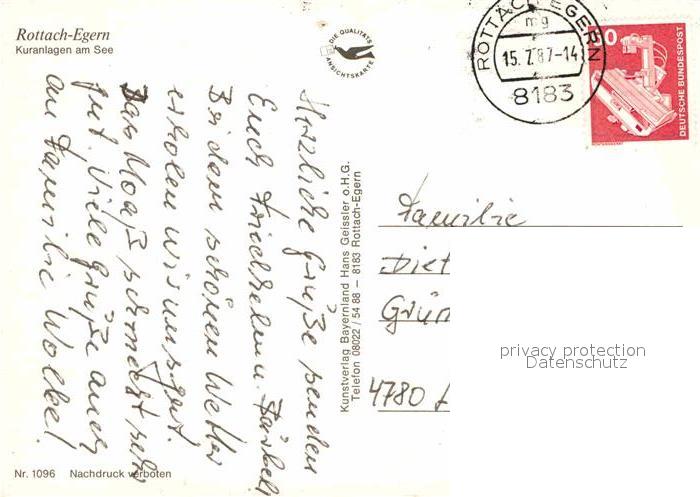 Rottach-Egern
Kuranlagen am See
DIE QUALITÄTS
ANSICHTSKARTE
ROTTACH-EGERN
mg
15. 7. 87-14
8183
0
DEUTSCHE BUNDESPOST
Herzliche Grüße senden
Euch Friedhelm. Bärbel.
Bei dem schönen Wetter
erholen wir uns gut.
Das Moaß schmeckt sehr
gut. Viele Grüße auch
an Familie Wolbel!
Kunstverlag Bayernland Hans Geissler o.H.G.
Telefon 08022 / 54 88 – 8183 Rottach-Egern
Familie
Diet
Grün
4780
privacy protection
Datenschutz
Nr. 1096 Nachdruck verboten